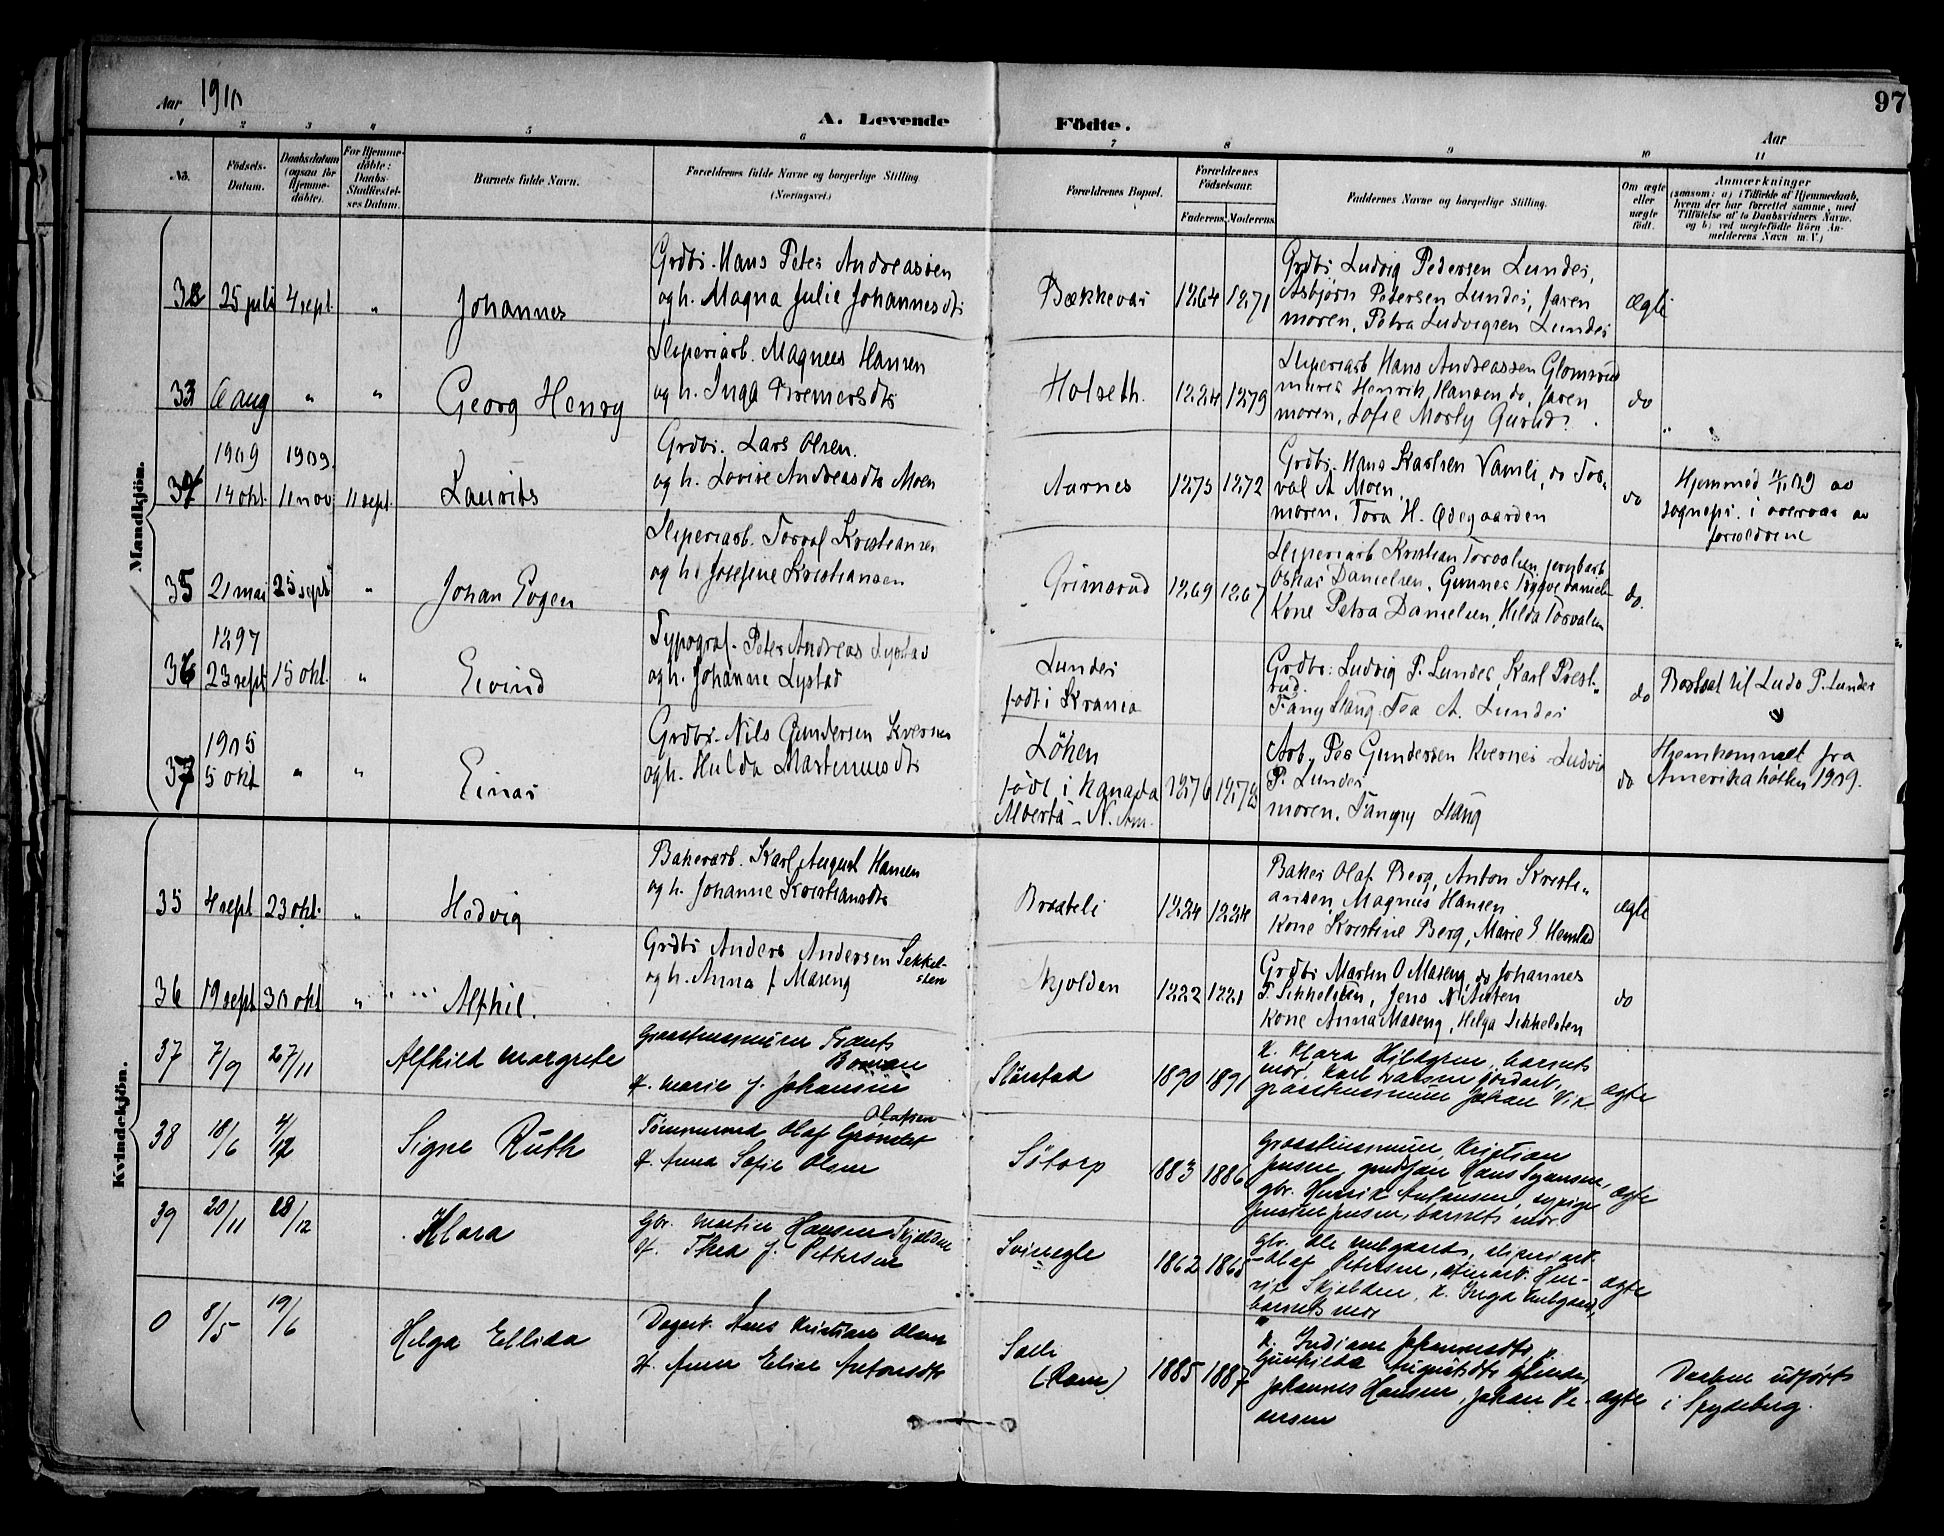 Aar 1910
A. Levende Födte.
Aar
97
1 2 3 4 5 6 7 8 9 10 11
No. Födsels-Datum. Daabsdatum (ogsaa for Hjemmedöbte). For Hjemmedöbte: Daabs-Stadfæstelses Datum. Barnets fulde Navn. Forældrenes fulde Navne og borgerlige Stilling (Næringsvei.) Forældrenes Bopæl. Forældrenes Födselsaar. Faderens. Moderens. Faddernes Navne og borgerlige Stilling. Om ægte eller uægte födt. Anmærkninger (saasom: a) i Tilfælde af Hjemmedaab, hvem der har forrettet samme, med Tilföielse af to Daabsvidners Navne. og b) ved uægtefödte Börn Anmelderens Navn m. V.)
Mandkjön.
33 25 juli 4 sept. " Johannes
Grdbr. Hans Peter Andreassen
og h. Magna Julie Johannesdtr
Bækkevar 1864 1871
Grdbr Ludvig Pedersen Lunder,
Asbjörn Petersen Lunder, faren
moren, Petra Ludvigsen Lunder
Ægte
33 6 aug " " Georg Henry
Sliperiarb. Magnus Hansen
og h. Inga Bremersdtr
Holseth. 1884 1879
Sliperiarb Hans Andreassen Glomsrud
murer Henrik Hansen do, faren
moren, Sofie Mosly
do
1909 1909.
34 14 okt. 11 nov 11 sept. Laurits
Grdbr. Lars Olsen.
og h. Lovise Andreasdtr Moen
Aarnes 1875 1872
Grdbr. Hans Karlsen Vamli, do Tor-
val A Moen,
moren, Tora H. Ødegaarden
do
Hjemmed 11/11 09 av
sognepr. i overvær av
forældrene
35 21 mai 25 sept " Johan Eogen
Sliperiarb. Torval Kristiansen
og h. Josefine Kristiansen
Grimsrud 1869 1867
Sliperiarb Kristian Torvalsen, jernbarb
Oskar Danielsen, Gunnes Trygve Daniels
Kone Petra Danielsen, Hilda Torvalsen
do.
1897
36 23 sept 15 okt. " Eivind
Typograf. Peter Andreas Lystad
og h. Johanne Lystad
Lunder
födt i Krania
Grdbr: Ludvig P. Lunder, Karl Prest-
rud.
Fany Stang Tea A. Lunder
do
Bortsat til Ludv P. Lunder
1905
37 5 okt " " Einar
Grdbr. Nils Gundersen Kvernes
og h. Hulda Martinusdtr
Löken
födt i Kanada
Alberta - N. Am. 1876 1878
Arb. Per Gundersen Kvernes - Ludvig
P. Lunder
moren, Fangny Stang
do
Hjemkommet fra
Amerika hösten 1909.
Kvindekjön.
35 4 sept 23 okt. " Hedvig
Bakerarb. Karl August Hansen
og h. Johanne Kristiansdtr
Braateli 1884 1884
Baker Olaf Berg, Anton Kristi-
ansen, Magnus Hansen
Kone Kristine Berg, Marie E Hemstad
ægte
36 19 sept 30 okt " Alfhil.
Grdbr Anders Andersen Sekkel-
sten
og h. Anna f Maseng
Skjolden 1882 1881
Grdbr Martin O Maseng, do Johannes
T. Sikkelsten, Jens N
Kone Anna Maseng, Helga Sikkelsten
do
37 7/9 27/11 Alfhild Margrete
Graastensminer Frants
Boman
H. Marie f. Johansen
Slörstad 1890 1891
K. Klara Hildgren, barnets
mor. Karl Larsen jordarb,
graastensminer Johan Vik
ægte
38 18/6 4/12 Signe Ruth
Tömmermand Olaf Olafsen Gröndal
H. Anna Sofie Olsen
Sötorp 1883 1886
Graastensminer, Kristian
Jensen, Hans Johansen,
gbr. Henrik Antonsen, sypige
Jensen, barnets mor
ægte
39 20/11 28/12 Klara
Gbr. Martin Hansen Skjolden
H. Thea f. Pettersen
Svinegle 1862 1865
gbr. Ole Melgaard, sliperiarb.
Olaf Petersen, Hen-
rik Skjolden, K. Inga Melgaard,
barnets mor
ægte
0 8/5 19/6 Helga Ellida
Dagarb. Hans Kristian Olsen
H. Anna Elise Antonsdtr
Solli
(Rom) 1885 1887
K. Indiane Johannesdtr, p.
Gunhilda Augustsdtr
Johannes Hansen, Johan Pe-
dersen
ægte
Daaben udført
i Spydeberg.